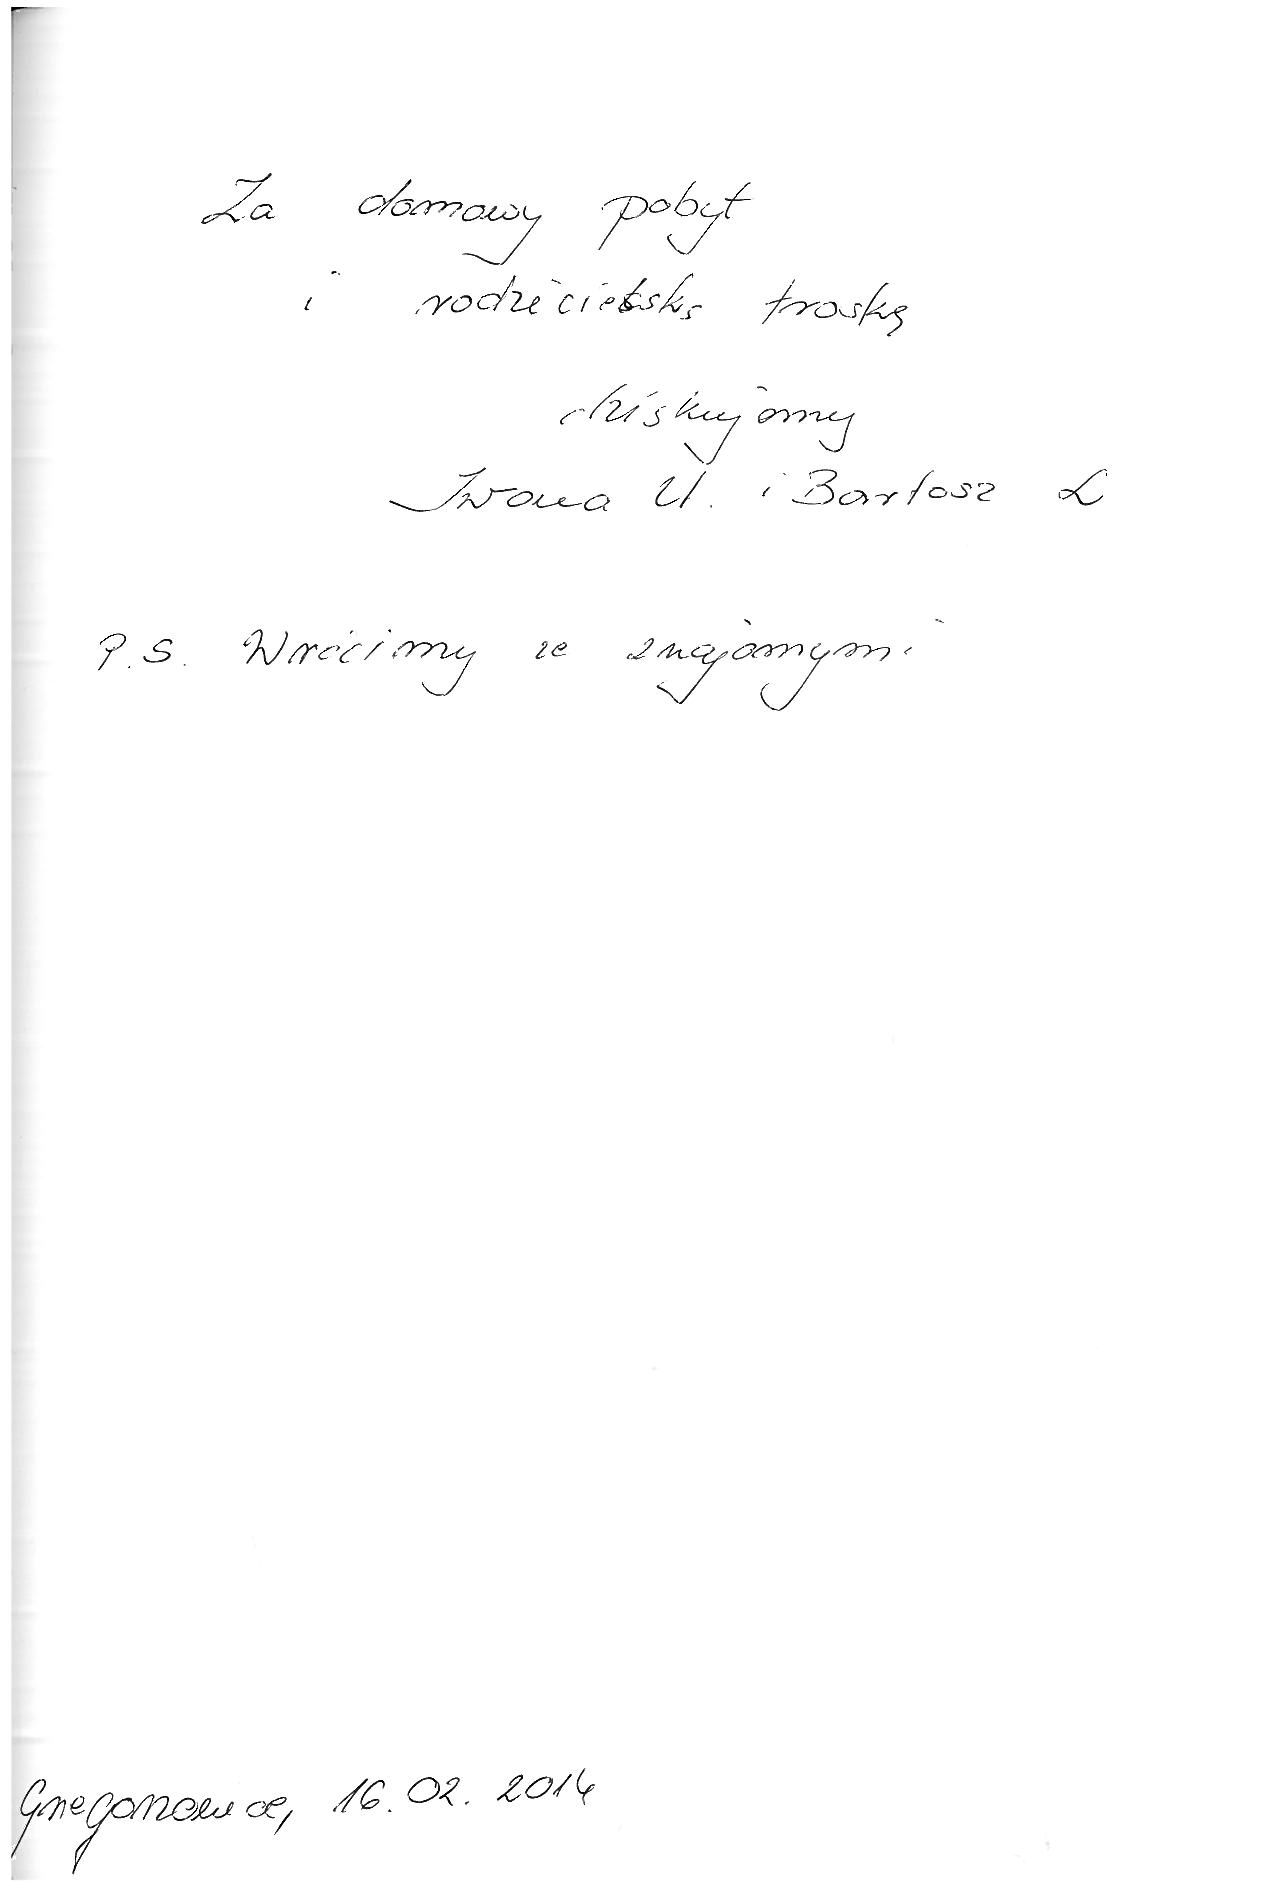 Za domowy pobyt
i rodzicielską troskę
dziękujemy
Iwona U. i Bartosz L
P.S. Wrócimy ze znajomymi
16.02.2014